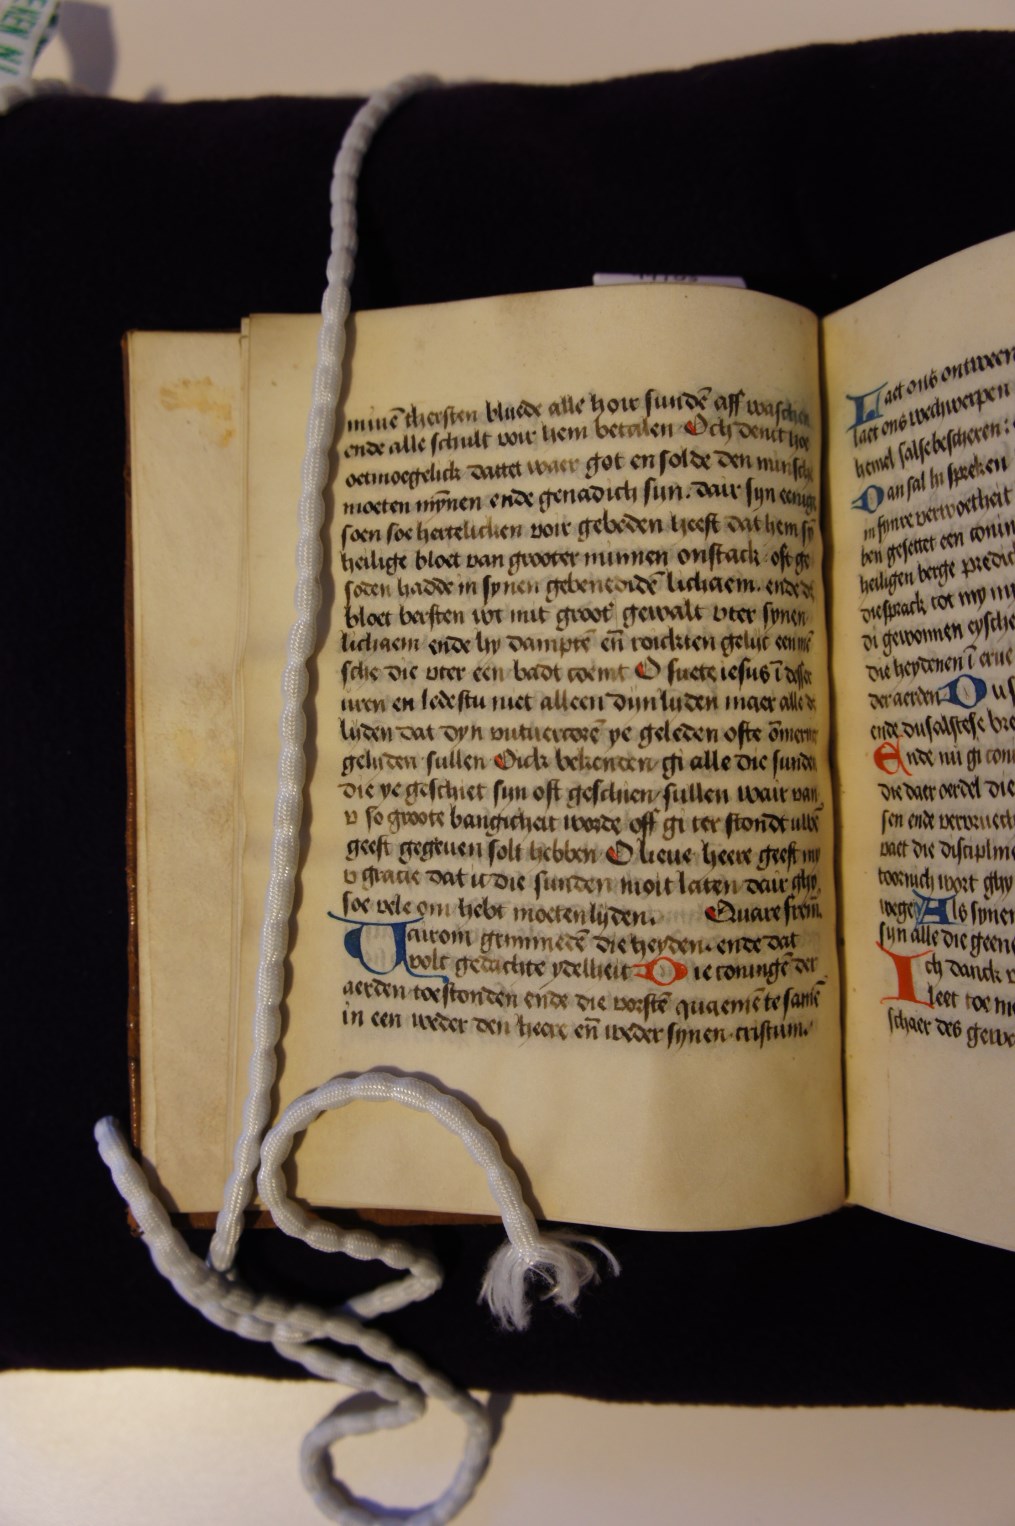 minnē thersten bluede alle hoir sundē aff waschen
ende alle schult voir hem betalen Och denct hoe
oetmoegelick dattet waer got en solde den minsche
moeten mȳnen ende genadich sijn. dair sijn eenige
soen soe hertelicken voir gebeden heeft dat hem sȳ
heilige bloet van grooter minnen onstack oft ge
soden hadde in synen gebenedidē lichaem. ende
bloet bersten wt mit groot gewalt vter synen
lichaem ende hy damptē eñ roickten gelijc een
sche die vter een badt coemt O suete iesus ī
uren en ledestu niet alleen dijn lijden maer alle
lijden dat dyn ye geleden ofte
geliden sullen Oick bekenden gi alle die sunden
die ye geschiet sijn oft geschien sullen wair van
v so groote bangicheit worde off gi ter stondt
geest gegeuen solt hebben O lieue heere geeft my
v gracie dat ic die sunden moit laten dair ghy
soe vele om hebt moeten lijden. Quare frem̄.
Wairom grimmedē die heyden. ende dat
volt gedachte ydelheit Die coninge der
aerden toestonden ende die vorstē quamē te samē
in een weder den heere eñ weder synen cristum.
Laet ons ontween
laet ons wechwerpen
hemel sal se bescheren:
Dan sal hi spreken
in synre verwoetheit
ben gesettet een conin
heiligen berge predic
die sprack tot my my
di gewonnen eysche
die heydenen ī erue
der aerden Du s
ende du salstese bre
Ende nu gi con
die daer oerdel die
sen ende
vaet die discipline
toornich wort ghy
wege Als synen
syn alle die geene
Ich danck v
leet toe
schaer des gew